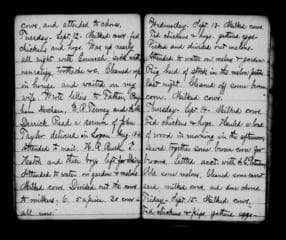 cows, and attended to chores.
Tuesday - Sept 12 - Milked cows, fed
chickens and hogs. Was up nearly
all night with Emmarah, sick with
neuralgia, toothache &c. Cleaned up
in house and waited on my
wife. Wrote letters to Patten, Ben
Derrick. Read a sermon of John
Taylor delivered in Logan Aug
Attended to mail.
Heaton and three boys left for
Attended to water on garden & melons
Milked cows. Divided out the cows
to milkers; 6. 5 apiece. 20 cows in
all now.
Wednesday - Sept 13 - Milked cows
Fed chickens & hogs, gathered eggs -
Picked and divided out melons.
Attended to water on melons & garden.
Big herd of stock in the melon patch
last night. Cleaned off some broom
corn. Milked cows.
Thursday - Sept 14 - Milked cows
Fed chickens & hogs. Hauled a load
of wood in morning, in the afternoon
some broom corn for
brooms, settled acct. with
Sold some melons, cleaned some corn
seed, milked cows, and done chores.
Friday - Sept 15. Milked cows.
Fed chickens & pigs, gathered eggs -